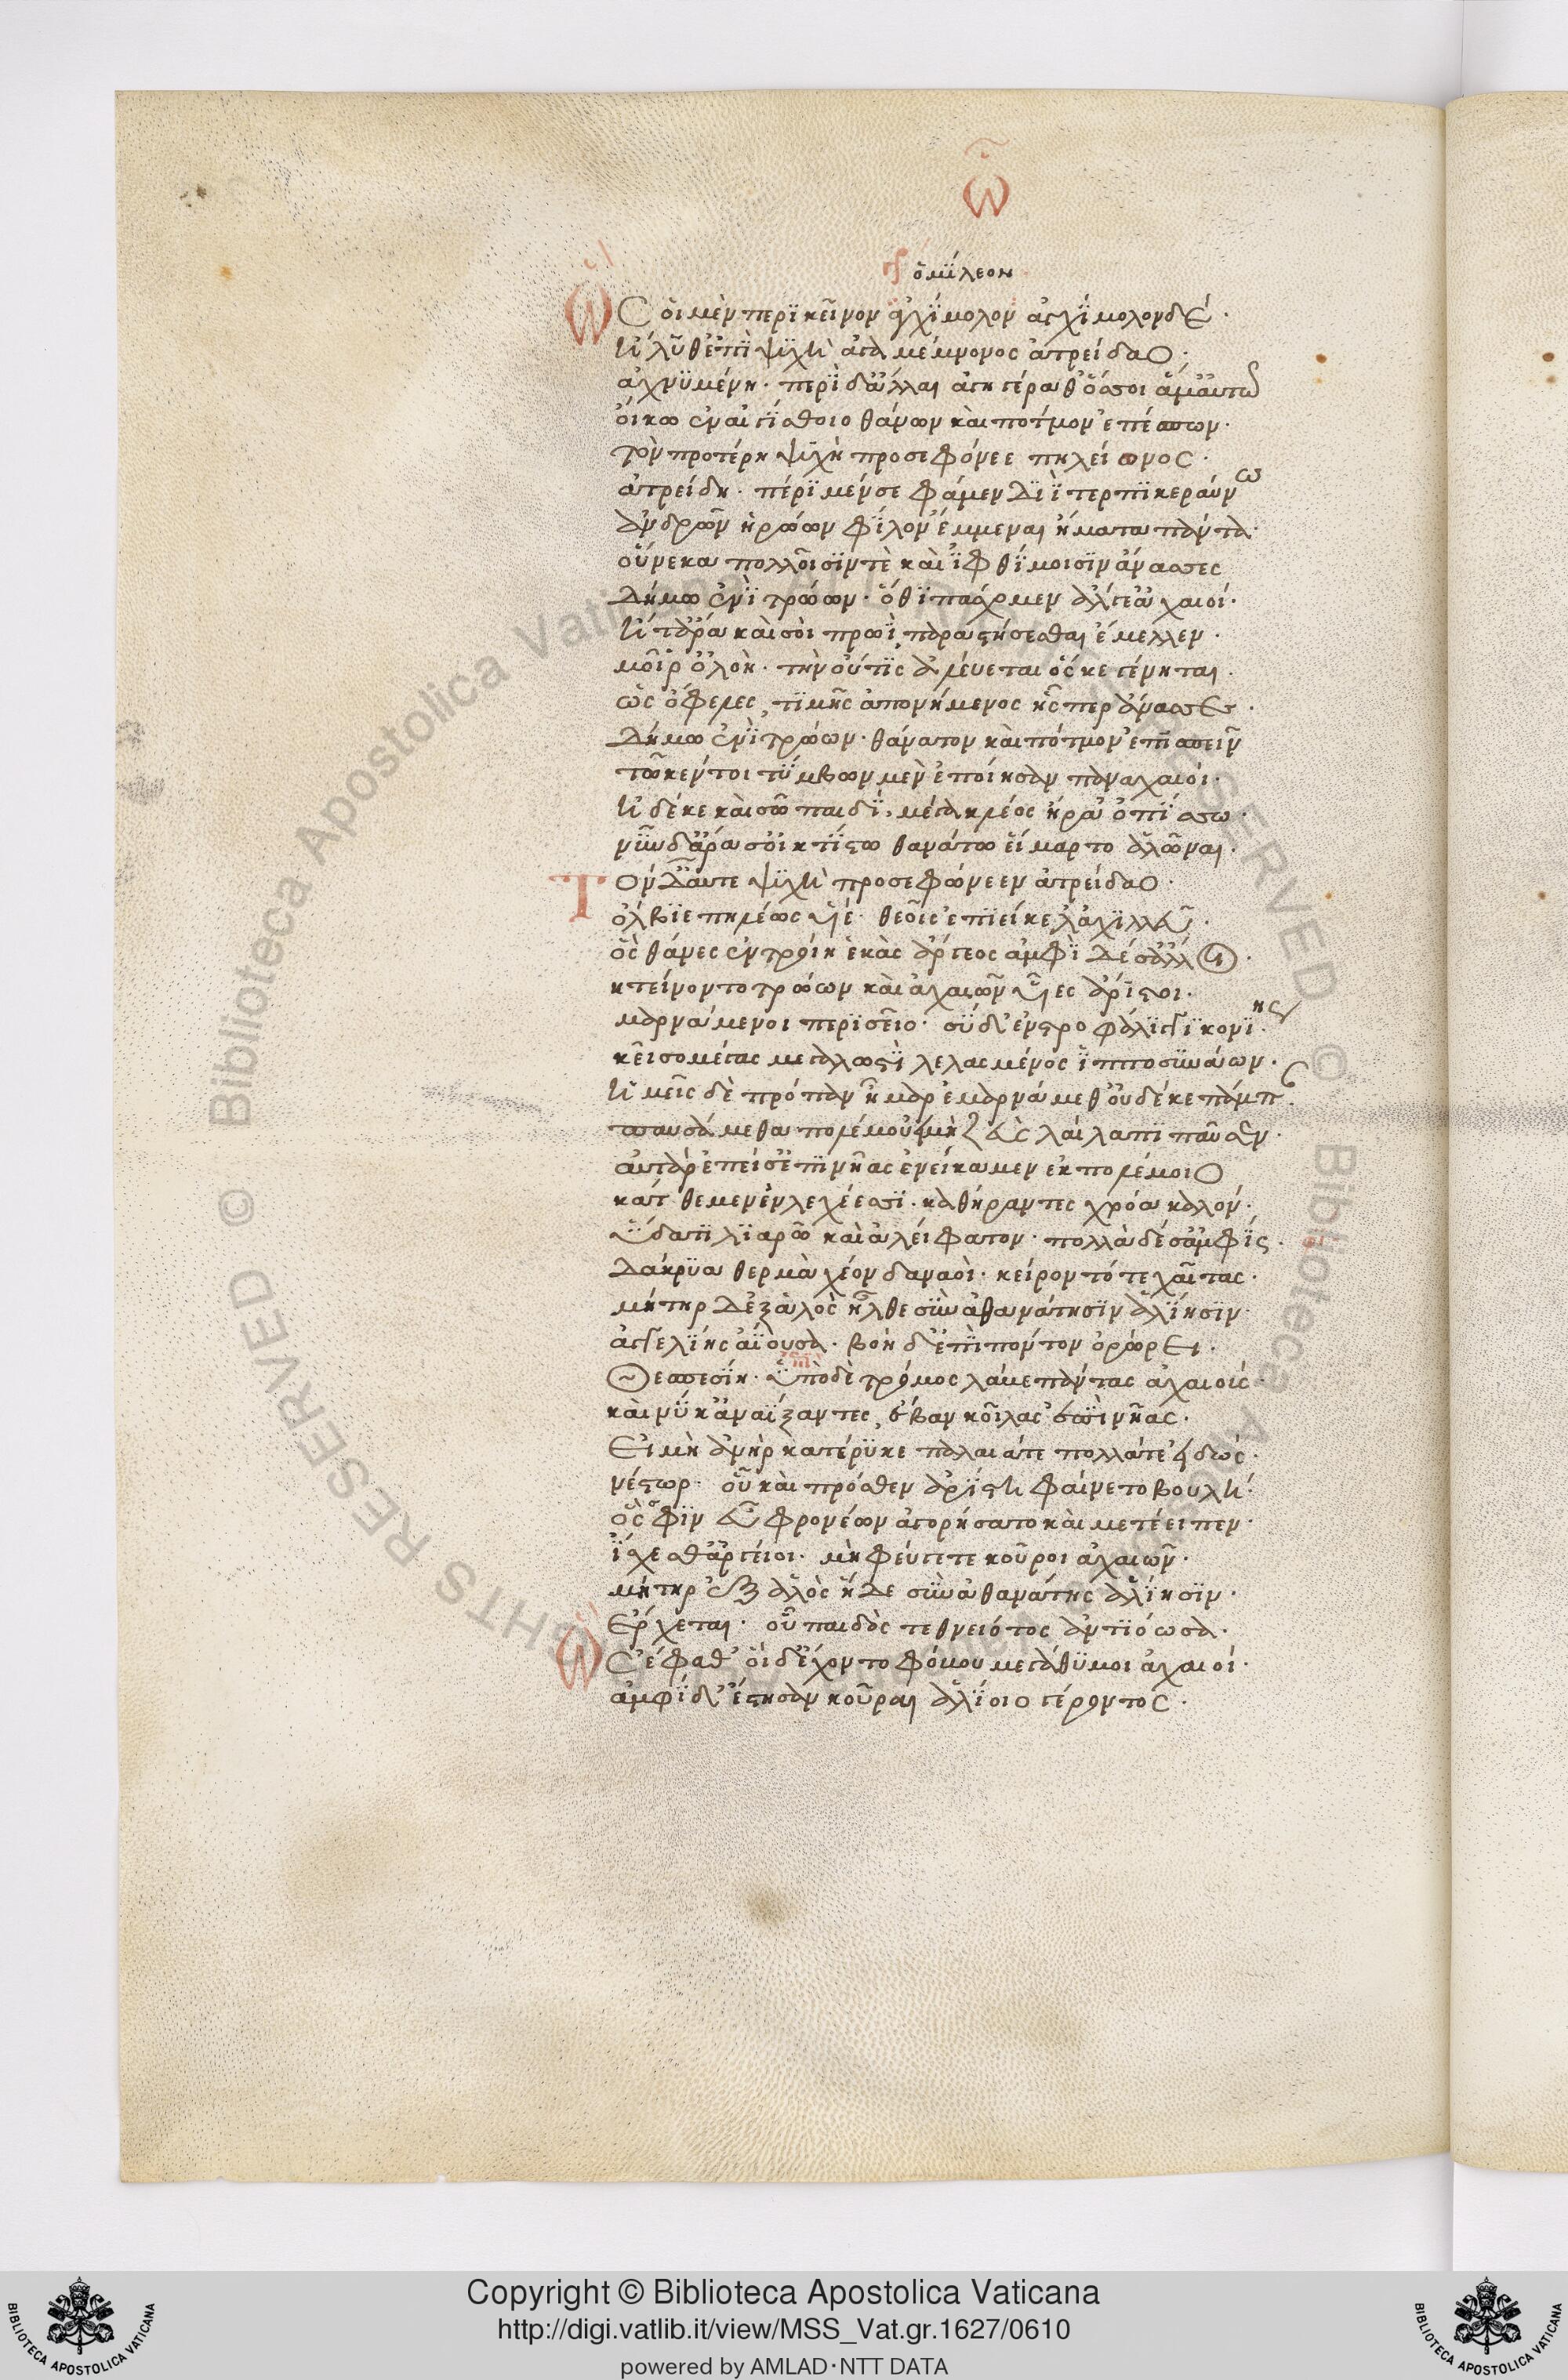 ω
γρ ὁμίλεον
Ὣς οἱ μὲν περὶ κεῖνον ἀγχίμολον ἀγχίμολονδέ·
ἤλυθ' ἐπὶ ψυχὴ ἀγαμέμνονος ἀτρείδαο·
ἀχνυμένη· περὶ δ' ἄλλαι ἀγηγέραθ' ὅσσοι ἅμ' αὐτῶ
οἴκω ἐν αἰγίσθοιο θάνων καὶ πότμον ἐπέσπων·
τὸν προτέρη ψυχὴ προσεφόνεε πηλείωνος·
ἀτρείδη· πέρι μέν σε φάμεν διὶ τερπικεραύνω
ἀνδρῶν ἡρώων φίλον ἔμμεναι ἤματα πάντα·
οὕνεκα πολλοῖσίν τε καὶ ἰφθίμοισιν ἄνασσες
δήμω ἐνὶ τρώων· ὅθι πάσχομεν ἄλγε' ἀχαιοί·
ἦ τ' ἄρα καὶ σοὶ πρωῒ παραστήσεσθαι ἔμελλεν·
μοῖρ' ὀλοὴ· τὴν οὔτις ἀλεύεται ὅς κε γένηται·
ὡς ὄφελες τιμῆς ἀπονήμενος ἧς περ ἄνασσες·
δήμω ἐνὶ τρώων· θάνατον καὶ πότμον ἐπισπεῖν
τῶ κέν τοι τύμβων μὲν ἐποίησαν παναχαιοί·
ἠδέ κε καὶ σῶ παιδὶ μέγα κλέος ἤρα' ὀπίσσω·
νῦν δ' ἄρα σ' οἰκτίστω θανάτω εἵμαρτο ἁλῶναι·
Τὸν δ' αὖτε ψυχὴ προσεφώνεεν ἀτρείδαο·
ὄλβιε πηλέως υἱέ· θεοῖς ἐπιείκελ' ἀχιλλεῦ·
ὃς θάνες ἐν τροίη ἑκὰς ἄργεος ἀμφὶ δέ σ' ἄλλοι·
κτείνοντο τρώων καὶ ἀχαιῶν υἷες ἄριστοι·
μαρνάμενοι περὶ σεῖο· σὺ δ' ἐν στροφάλιγγι κονίης
κεῖσο μέγας μεγαλωστὶ λελασμένος ἱπποσυνάων·
ἡμεῖς δὲ πρόπαν ἦμαρ ἐμαρνάμεθ' οὐδέ κε πάμπ
παυσάμεθα πολέμου εἰ μὴ ζεὺς λαίλαπι παῦσεν·
αὐτὰρ ἐπεί σ' ἐπὶ νῆας ἐνείκαμεν ἐκ πολέμοιο
κάτθεμεν ἐν λεχέεσσι· καθήραντες χρόα καλόν·
ὕδατι λιαρῶ καὶ ἀλείφατον· πολλὰ δέ σ' ἀμφίς·
δάκρυα θερμὰ χέον δαναοὶ· κείροντό τε χαίτας·
μήτηρ δ' ἐξ ἁλὸς ἦλθε σὺν ἀθανάτησιν ἁλίησιν
ἀγγελίης ἀΐουσα· βοὴ δ' ἐπὶ πόντον ὀρώρει·
θεσπεσίη· ὑπὸ δὲ τρόμος λάμε πάντας ἀχαιούς·
ἐπὶ
καὶ νύ κ' ἀναΐξαντες ἔβαν κοίλας ἐπὶ νῆας·
εἰ μὴ ἀνὴρ κατέρυκε παλαιά τε πολλά τε εἰδώς·
νέστωρ· οὗ καὶ πρόσθεν ἀρίστη φαίνετο βουλή·
ὅς σφιν εὐφρονέων ἀγορήσατο καὶ μετέειπεν·
ἴσχεσθ' ἀργεῖοι· μὴ φεύγετε κοῦροι ἀχαιῶν·
μήτηρ ἐξ ἁλὸς ἥδε σὺν ἀθανάτης ἁλίησιν·
ἔρχεται· οὗ παιδὸς τεθνειότος ἀντιόωσα·
Ὣς ἔφαθ' οἱ δ' ἔχοντο φόβου μεγάθυμοι ἀχαιοί·
ἀμφὶ δ' ἔστησαν κοῦραι ἁλίοιο γέροντος·
Copyright © Biblioteca Apostolica Vaticana
http://digi.vatlib.it/view/MSS_Vat.gr.1627/0610
powered by AMLAD·NTT DATA